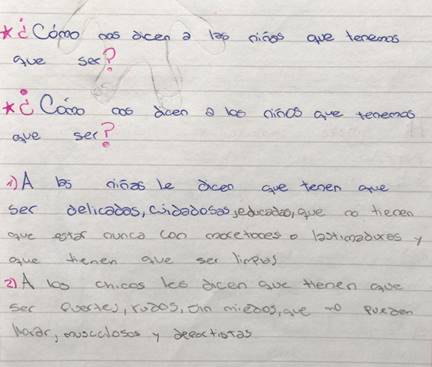 * ¿Cómo nos dicen a las niñas que tenemos
que ser?
* ¿Cómo nos dicen a los niños que tenemos
que ser?
1) A las niñas le dicen que tenen que
ser delicadas, cuidadosas, educadas, que no tienen
que estar nunca con moretones o lastimaduras y
que tienen que ser limpias
2) A los chicos les dicen que tienen que
ser fuertes, rudos, sin miedos, que no pueden
llorar, musculosos y deportistas